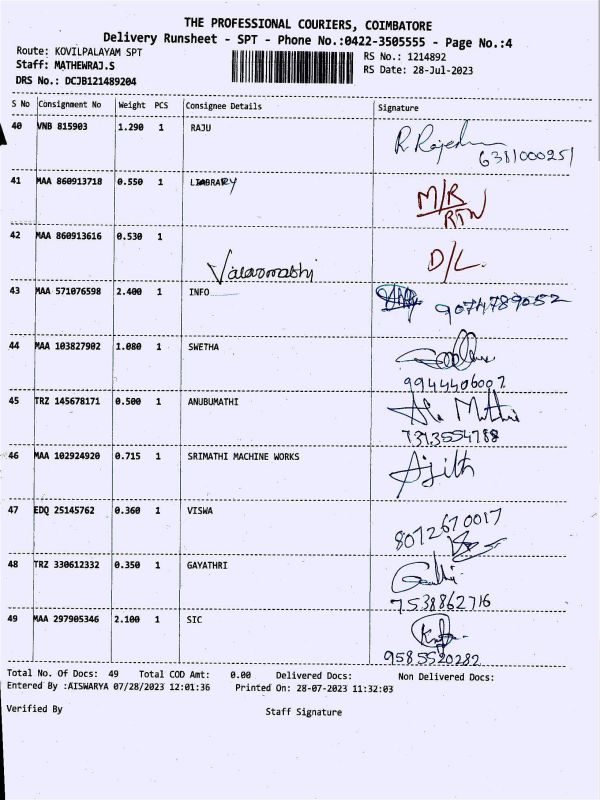 THE PROFESSIONAL COURIERS, COIMBATORE
Delivery Runsheet - SPT - Phone No.:0422-3505555 - Page No.:4
Route: KOVILPALAYAM SPT
Staff: MATHEWRAJ.S
DRS No.: DCJB121489204
RS No.: 1214892
RS Date: 28-Jul-2023
S No Consignment No Weight PCS Consignee Details Signature
40 VNB 815903 1.290 1 RAJU
6381000251
41 MAA 860913718 0.550 1 LIABRARY M/R
RTN
42 MAA 860913616 0.530 1 D/L.
43 MAA 571076598 2.400 1 INFO 9074789052
44 MAA 103827902 1.080 1 SWETHA
9944406007
45 TRZ 145678171 0.500 1 ANUBUMATHI
7373554788
46 MAA 102924920 0.715 1 SRIMATHI MACHINE WORKS Ajith
47 EDQ 25145762 0.360 1 VISWA 8072670017
48 TRZ 330612332 0.350 1 GAYATHRI
7538862716
49 MAA 297905346 2.100 1 SIC
9585520282
Total No. Of Docs: 49 Total COD Amt: 0.00 Delivered Docs: Non Delivered Docs:
Entered By :AISWARYA 07/28/2023 12:01:36 Printed On: 28-07-2023 11:32:03
Verified By Staff Signature